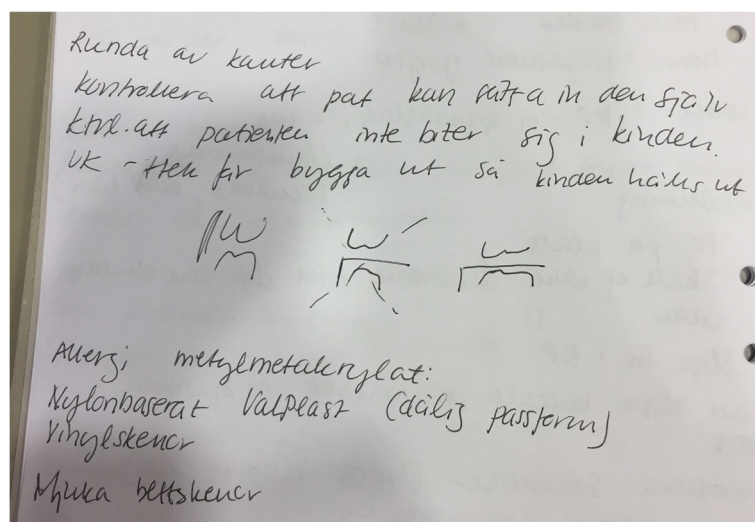 Runda av kanter
kontrollera att pat kan sätta in den själv
ktrl. att patienten inte biter sig i kinden.
UK - tekn får bygga ut så kinden hålls ut
Allergi metylmetakrylat:
Nylonbaserat Valplast (dålig passform)
Vinylskenor
Mjuka bettskenor